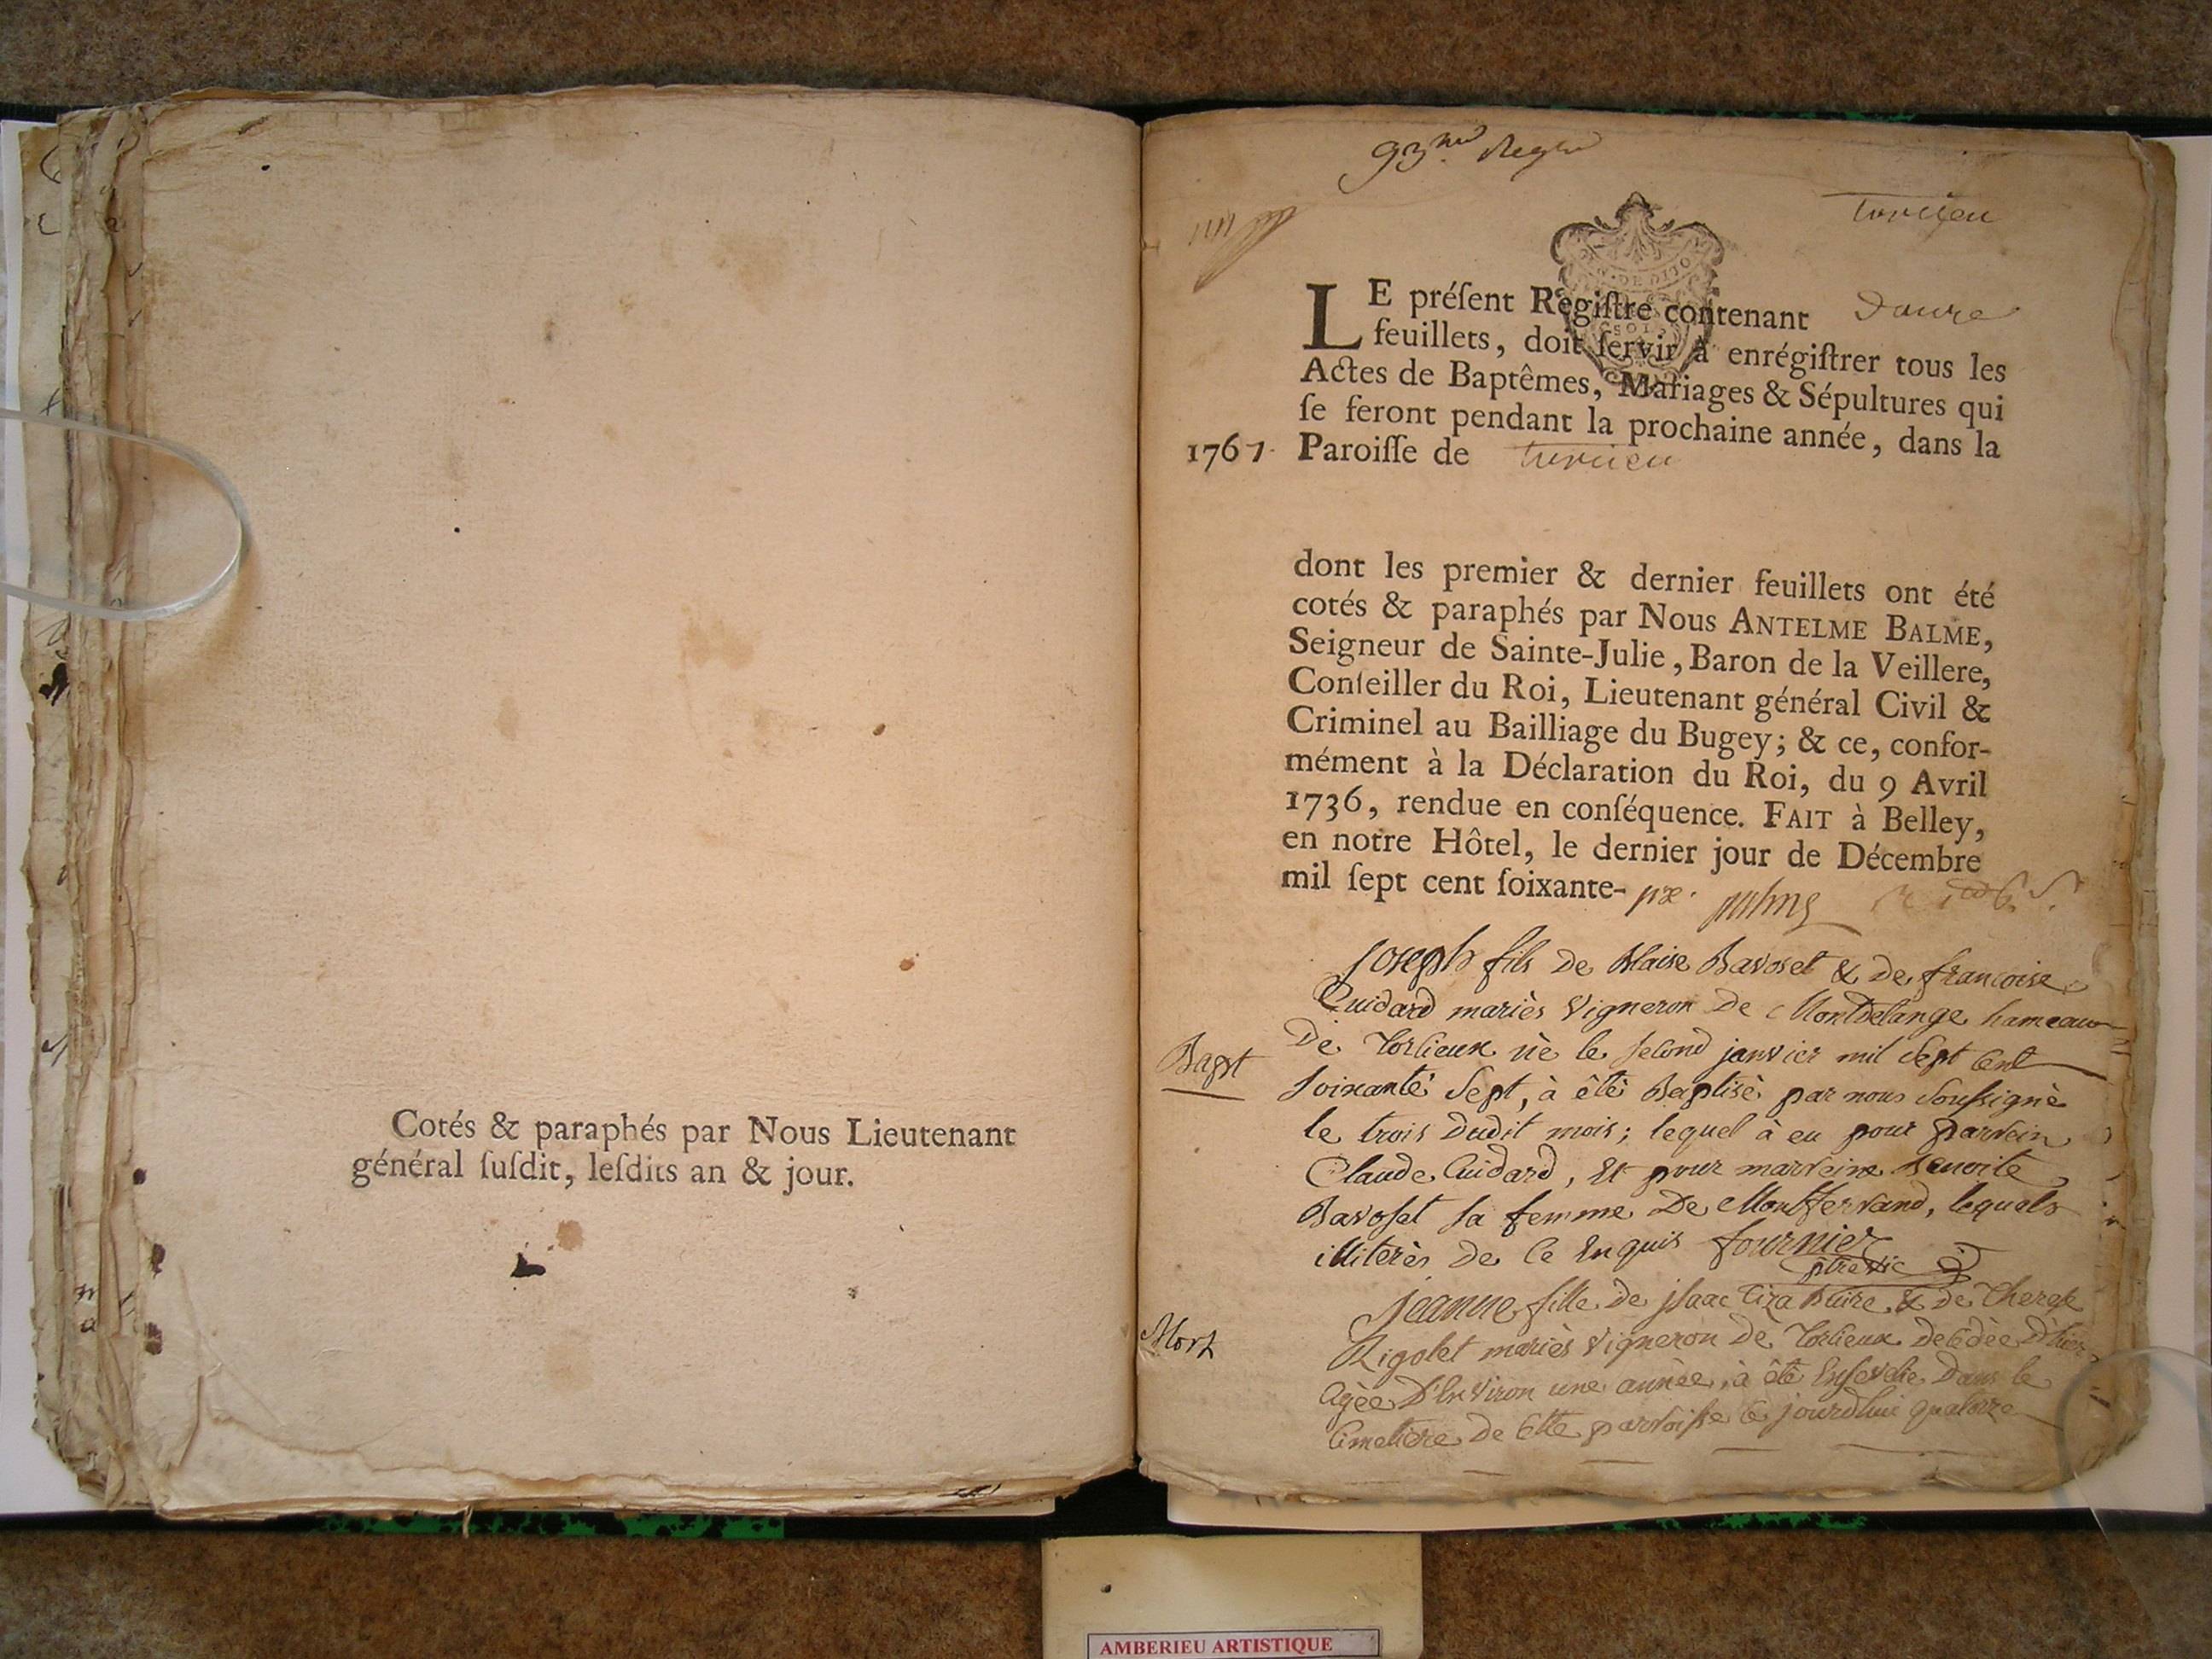 Cotés & paraphés par Nous Lieutenant
général ſuſdit, leſdits an & jour.
93.me Regre
turcieu
LE préſent Regiſtre contenant Douze
feuillets, doit ſervir à enrégiſtrer tous les
Actes de Baptêmes, Mariages & Sépultures qui
ſe feront pendant la prochaine année, dans la
1767. Paroiſſe de turcieu
dont les premier & dernier feuillets ont été
cotés & paraphés par Nous ANTELME BALME,
Seigneur de Sainte-Julie, Baron de la Veillere,
Conſeiller du Roi, Lieutenant général Civil &
Criminel au Bailliage du Bugey; & ce, confor-
mément à la Déclaration du Roi, du 9 Avril
1736, rendue en conſéquence. FAIT à Belley,
en notre Hôtel, le dernier jour de Décembre
mil ſept cent ſoixante-
Joseph fils de Blaise Bavoset & de francoise
Cuidard mariès Vigneron De Montdelange hameau
De Torlieux nè le second janvier mil Sept Cent
Bapt Soixante Sept, à êtè Baptisè par nous Soussignè
le trois dudit mois; lequel à eu pour parrein
Claude Cuidard, Et pour marreine Benoite
Bavoset sa femme De Montferrand, lequels
illiterès De Ce Enquis fournier
ptre vic
Jeanne fille De jsaac Tira Buire & De Therese
Mort Rigolet mariès Vigneron De Torlieux Decedèe D'hier
Agèe D'Environ une annèe, à êtè Ensevelie Dans le
Cimetiere De Cette parroisse Ce jourdhui quatorze
AMBERIEU ARTISTIQUE